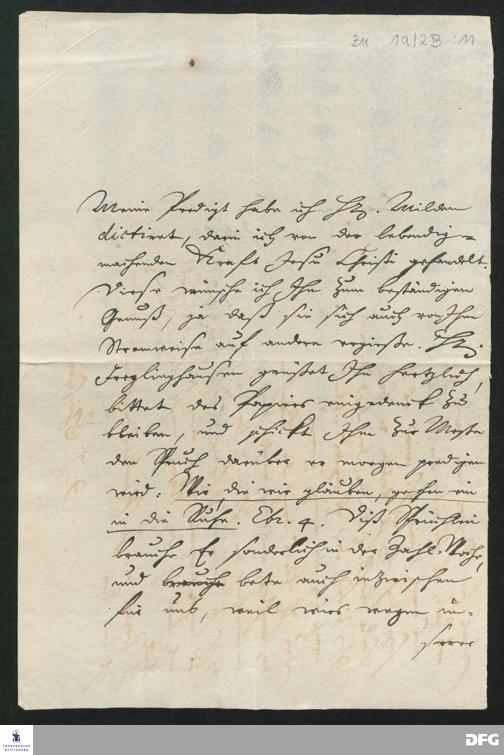 zu 1a/2B :11
Meine Predigt habe ich H. Milden
dictiret, darin ich von der lebendig=
machenden Krafft Jesu Christi gehandelt.
Diese wünsche ich Ihm zum beständigen
Genuß, ja daß sie sich auch von Ihm
Stromweise auf andere ergieße. H.
Freylinghausen grüßet Ihn hertzlich,
bittet des Papiers eingedenck zu
bleiben, und schickt Ihm zur Messe
den Spruch darüber er morgen predigen
wird: Wir, die wir gläuben, gehen ein
in die Ruhe. Ebr. 4. Diß Sprüchlein
brauche Er sonderlich in der Zahl-Woche,
und brauche bete auch inzwischen
für uns, weil wirs wegen un-
serer
FRANCKESCHE
STIFTUNGEN
DFG